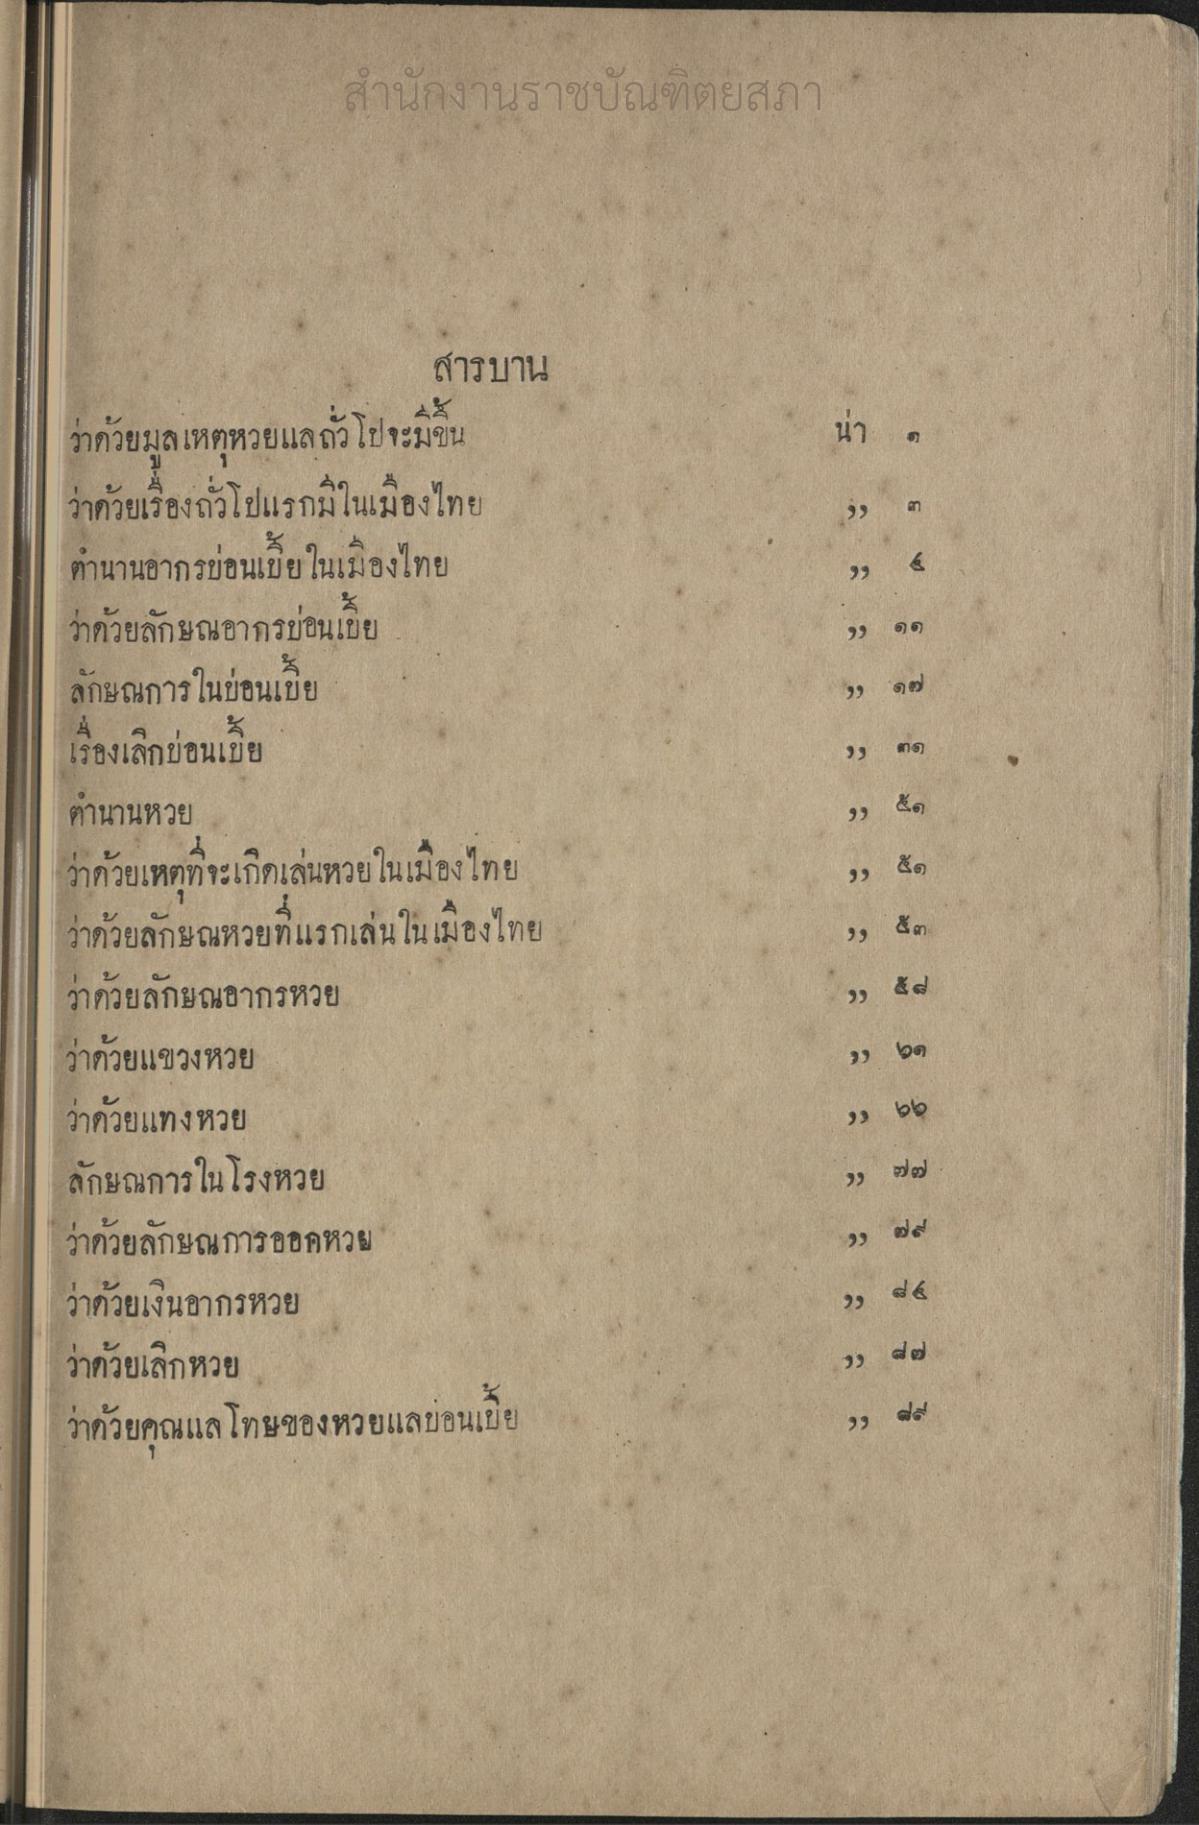 สำนักงานราชบัณฑิตยสภา
สารบาน
ว่าด้วยมูลเหตุหวยแลถั่วโปจะมีขึ้น น่า ๑
ว่าด้วยเรื่องถั่วโปแรกมีในเมืองไทย ,, ๓
ตำนานอากรบ่อนเบี้ยในเมืองไทย ,, ๕
ว่าด้วยลักษณอากรบ่อนเบี้ย ,, ๑๑
ลักษณการในบ่อนเบี้ย ,, ๑๗
เรื่องเลิกบ่อนเบี้ย ,, ๓๑
ตำนานหวย ,, ๕๑
ว่าด้วยเหตุที่จะเกิดเล่นหวยในเมืองไทย ,, ๕๑
ว่าด้วยลักษณหวยที่แรกเล่นในเมืองไทย ,, ๕๓
ว่าด้วยลักษณอากรหวย ,, ๕๘
ว่าด้วยแขวงหวย ,, ๖๑
ว่าด้วยแทงหวย ,, ๖๖
ลักษณการในโรงหวย ,, ๗๗
ว่าด้วยลักษณการออกหวย ,, ๗๙
ว่าด้วยเงินอากรหวย ,, ๘๔
ว่าด้วยเลิกหวย ,, ๘๗
ว่าด้วยคุณแลโทษของหวยแลบ่อนเบี้ย ,, ๘๙